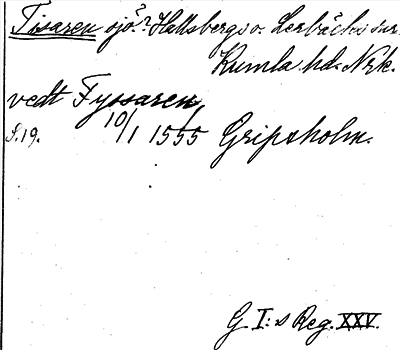 Tisaren sjö? Hallsbergs o. Lerbäcks snr.
Kumla hd. Nrk.
vedt Fyssaren
S. 19. 10/1 1555 Gripsholm.
G I:s Reg. XXV.